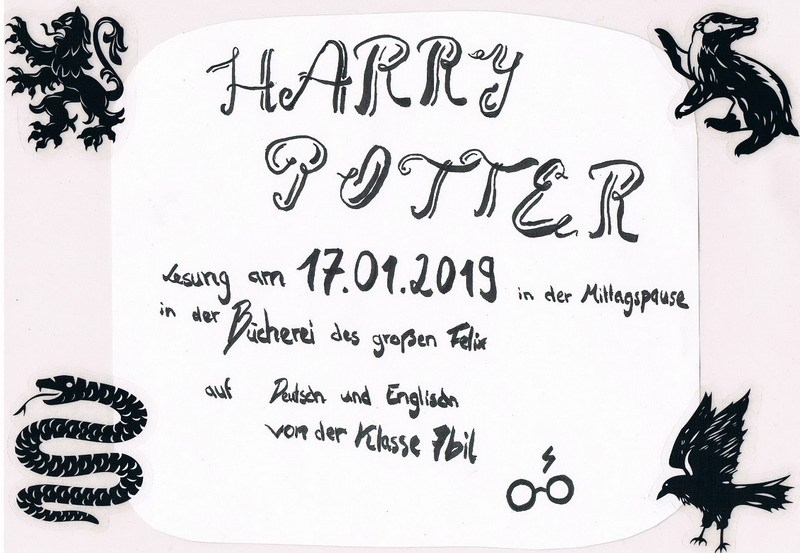 HARRY
POTTER
Lesung am 17.01.2019 in der Mittagspause
in der Bücherei des großen Felix
auf Deutsch und Englisch
von der Klasse 7bil